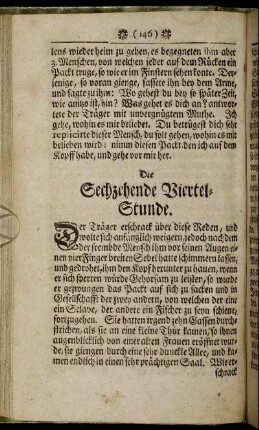 ( 146 )
lens wieder heim zu gehen, es begegneten ihm aber
3. Menschen, von welchen jeder auf dem Rücken ein
Packt truge, so wie er im Finstern sehen konte. Der-
jenige, so voran gienge, fassete ihn bey dem Arme,
und sagte zu ihm: Wo gehest du bey so später Zeit,
wie anitzo ist, hin? Was gehet es dich an? antwor-
tete der Träger mit unvergnügtem Muthe. Ich
gehe, wohin es mir beliebet. Du betrügest dich sehr
replicirte dieser Mensch, du solt gehen, wohin es mir
belieben wird: nimm diesen Packt den ich auf dem
Kopff habe, und gehe vor mir her.
Die
Sechzehende Viertel-
Stunde.
Der Träger erschrack über diese Reden, und
wolte sich anfäntzlich weigern, jedoch nachdem
der fremde Mensch ihm vor seinen Augen ei-
nen vier Finger breiten Sebel hatte schimmern lassen,
und gedrohet, ihm den Kopf herunter zu hauen, wenn
er sich sperren würde Gehorsam zu leisten, so wurde
er gezwungen das Packt auf sich zu sacken und in
Gesellschafft der zwey andern, von welchen der eine
ein Sclave, der andere ein Fischer zu seyn schiene,
fortzugehen. Sie hatten irgend zehn Gassen durch-
strichen, als sie an eine kleine Thür kamen, so ihnen
augenblicklich von einer alten Frauen eröffnet wur-
de, sie giengen durch eine sehr dunckle Allee, und ka-
men endlich in einen sehr prächtigen Saal. Wie er-
schrack